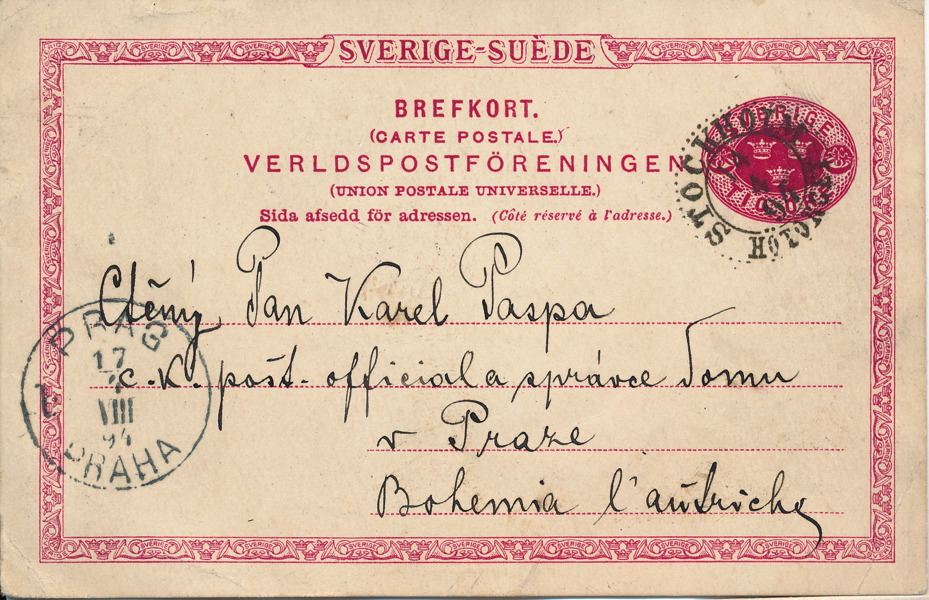 SVERIGE-SUÈDE
BREFKORT.
(CARTE POSTALE.)
VERLDSPOSTFÖRENINGEN
(UNION POSTALE UNIVERSELLE.)
Sida afsedd för adressen. (Côté réservé à l'adresse.)
STOCKHOLM
HÖTORGET
SVERIGE
TIO ÖRE
Ctěný Pan Karel Paspa
c.k. pošt. official a správce domu
v Praze
Bohemia l'autriche
PRAG
17
VIII
94
PRAHA